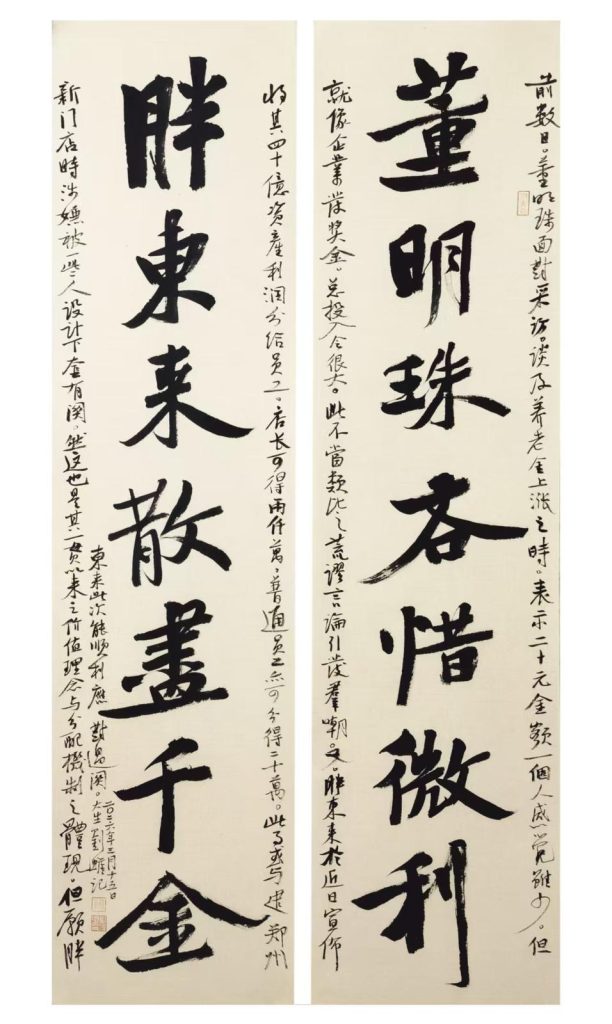 董明珠吝惜微利
胖東来散盡千金
前数日。董明珠面對采访。谈及养老金上涨之時。表示二十元金额一個人感觉雖少。但
就像企業发奖金。总投入会很大。此不當類比之荒謬言論引发羣嘲。又。胖東来於近日宣佈
将其四十億资產利润分给員工。店长可得兩仟萬。普通員工亦可分得二十萬。此事或与建郑州
新门店時涉嫌被一些人设计下套有関。然这也是其一贯以来之价值理念与分配機制之體現。但願胖
東来此次能顺利應對过関。
二〇二六年三月十五日
大生劉 记